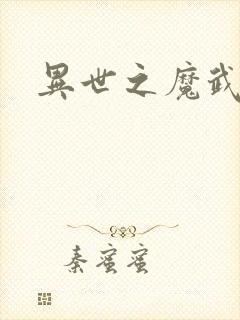 異世之魔武
秦蜜蜜